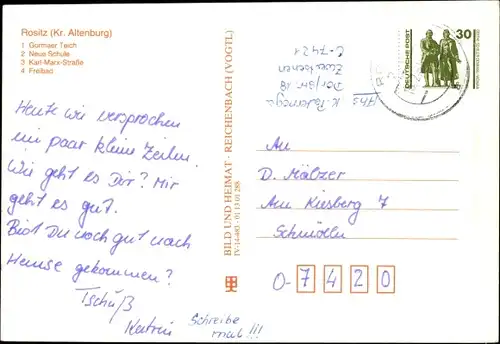 Rositz (Kr. Altenburg)
1 Gormaer Teich
2 Neue Schule
3 Karl-Marx-Straße
4 Freibad
Heute wir versprochen
ein paar kleine Zeilen.
Wie geht es Dir? Mir
geht es gut.
Bist Du noch gut nach
Hause gekommen?
Tschüß
Katrin
Schreibe
mal!!!
BILD UND HEIMAT · REICHENBACH (VOGTL)
IV-14-40
Abs
K.
Dorfstr. 18
0-7421
DEUTSCHE POST
30
An
D. Mälzer
Am Kiesberg 7
Schmölln
0-7420